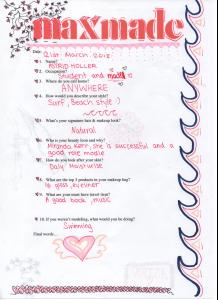 maxmade
Date: 21st March 2012
1. Name?
ASTRID HOLLER
2. Occupation?
Student and
3. Where do you call home?
ANYWHERE
4. How would you describe your style?
Surf, Beach style :)
5. What's your signature hair & makeup look?
Natural
6. Who is your beauty icon and why?
Miranda Kerr, she is successful and a
good role modle
7. How do you look after your skin?
Daily Moisturise
8. What are the top 3 products in your makeup bag?
lip gloss, eyeliner
9. What are your must have travel items?
A good book, music
10. If you weren't modeling, what would you be doing?
Swimming
Final words...